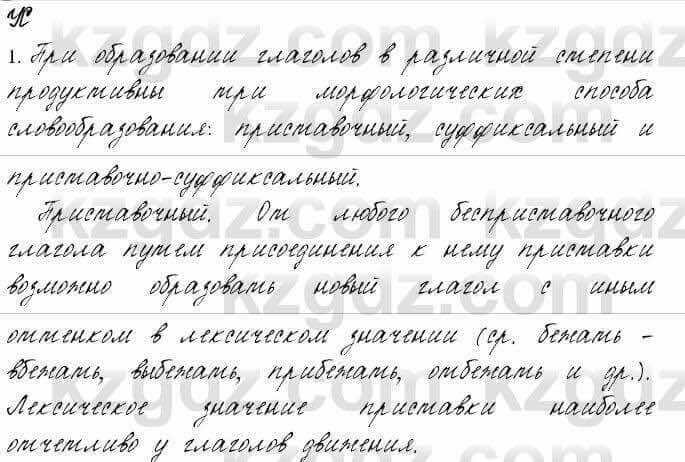 УС
1. При образовании глаголов в различной степени
продуктивны три морфологических способа
словообразования: приставочный, суффиксальный и
приставочно-суффиксальный.
Приставочный. От любого бесприставочного
глагола путем присоединения к нему приставки
возможно образовать новый глагол с иным
оттенком в лексическом значении (ср. бежать -
вбежать, выбежать, прибежать, отбежать и др.).
Лексическое значение приставки наиболее
отчетливо у глаголов движения.
kzgdz.com